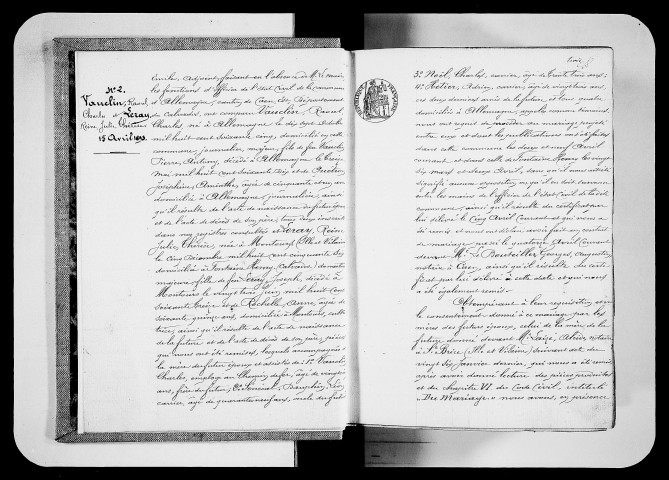 N° 2.
Vauclin, Raoul
Charles et Leray
Reine Julie Thérèse
15 Avril 1893
Emile, adjoint faisant en l'absence de Mr le maire
les fonctions d'officier de l'Etat Civil de la commune
d'Allemagne, canton de Caen, Département
du Calvados, ont comparu Vauclin, Raoul
Charles, né à Allemagne le dix sept
mil huit cent soixante cinq, domicilié en cette
commune, journalier, majeur, fils de feu Vauclin
Pierre, décédé à Allemagne le treize
Mai mil huit cent soixante dix et de
Joséphine, Aminthe, âgée de cinquante et un an
domiciliée à Allemagne, journalière, ainsi
qu'il résulte de l'acte de naissance du futur époux
et de l'acte de décès de son père, tous deux inscrits
dans nos registres consultés et Leray, Reine
Julie, Thérèse, née à Montours Ille et Vilaine
le cinq Décembre mil huit cent cinquante six
domiciliée à Fontaine Henry, Calvados, domestique
majeure, fille de feu Leray Joseph, décédé à
Montours le vingt six juin mil huit cent
soixante treize et de Rochelle, Anne, âgée de
soixante quinze ans, domiciliée à Montours, culti
trice, ainsi qu'il résulte de l'acte de naissance
de la future et de l'acte de décès de son père, pièces
qui nous ont été remises, lesquels accompagnés de
la mère du futur époux et assistés de 1° Vauclin
Charles, employé au Chemin de fer, âgé de vingt six
ans, frère du futur, 2°
carrier, âgé de quarante deux ans, oncle du futur
trois
3° Noël, Charles, carrier, âgé de trente trois ans;
4° Hélier, Adrien, carrier, âgé de vingt deux ans
ces deux derniers amis de la future, et tous quatre
domiciliés à Allemagne, appelés comme témoins,
nous ont requis de procéder au mariage projeté
entre eux et dont les publications ont été faites
dans cette commune les deux et neuf Avril
courant et dans celle de Fontaine Henry les vingt
six mars et deux Avril, sans qu'il nous ait été
signifié aucune opposition, ni qu'il en soit survenu
entre les mains de l'officier de l'état civil de cette
commune ainsi qu'il résulte du certificat par
lui délivré le cinq Avril courant et qui nous a
été remis et nous ont déclaré avoir fait un contrat
de mariage passé le quatorze Avril courant
devant Me Le Bouteiller Georges, Augustin
notaire à Caen, ainsi qu'il résulte du certi
ficat par lui délivré à cette date et qui nous
a été également remis.
Obtempérant à leur réquisitoire, et vu
le consentement donné à ce mariage par les
mères des futurs époux, celui de la mère de la
future donné devant Me Laizé, Alexis, notaire
à St Brice, Ille et Vilaine, suivant acte du
vingt six janvier dernier, qui nous a été remis
après avoir donné lecture des pièces précitées
et du chapitre VI du Code Civil, intitulé
"Du Mariage" nous avons, en présence